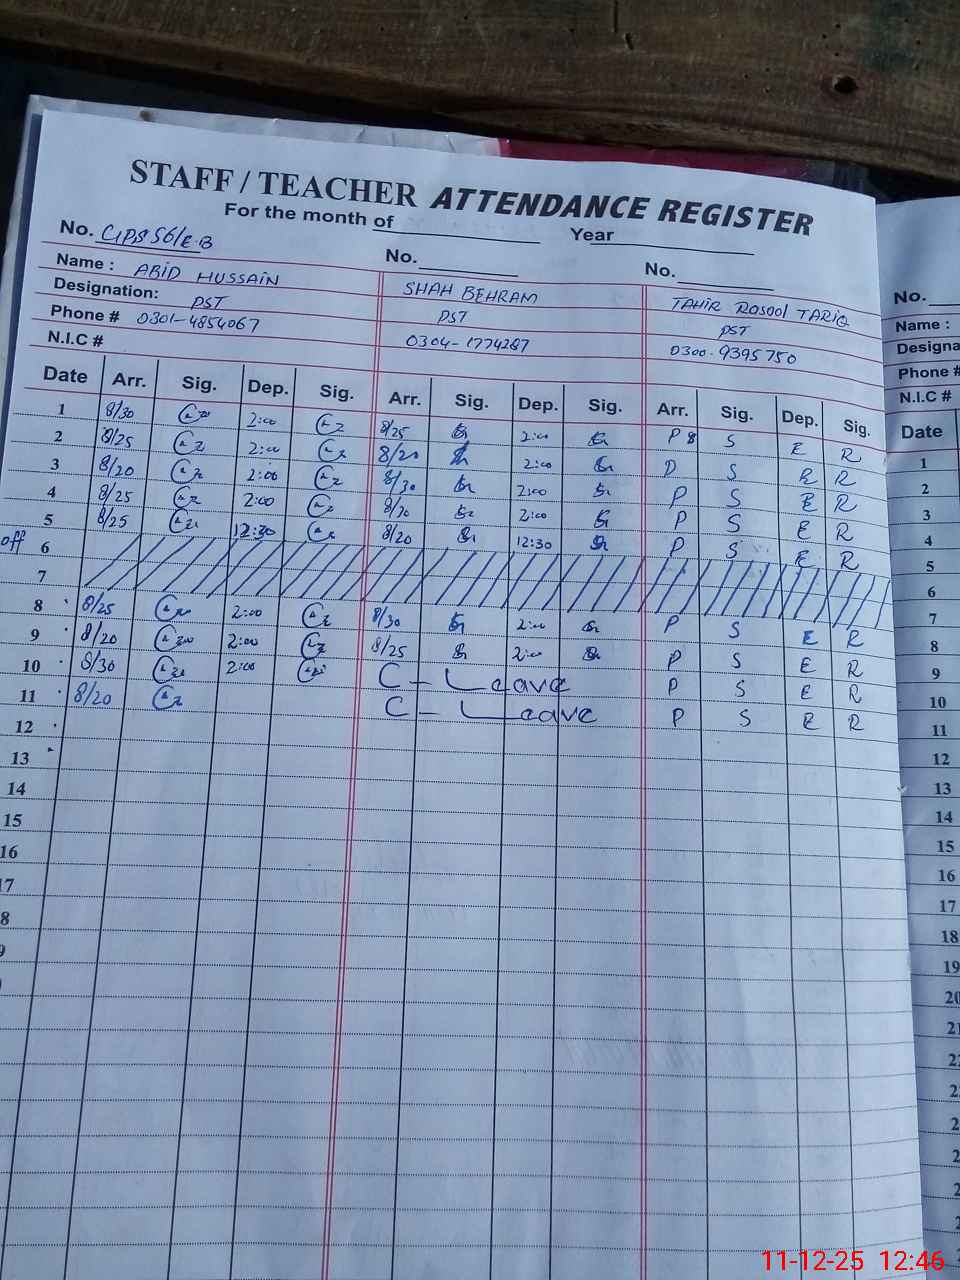 STAFF / TEACHER ATTENDANCE REGISTER
For the month of Year
No. GPS 56/E.B No. No.
Name : ABID HUSSAIN SHAH BEHRAM TAHIR RASOOL TARIQ
Designation: PST PST PST
Phone # 0301-4854067 0304-1774287 0300-9395750
N.I.C #
Date Arr. Sig. Dep. Sig. Arr. Sig. Dep. Sig. Arr. Sig. Dep. Sig.
1 8/30 2:00 8/25 2:00 P S E R
2 8/25 2:00 8/20 2:00 P S E R
3 8/20 2:00 8/30 2:00 P S E R
4 8/25 2:00 8/20 2:00 P S E R
5 8/25 12:30 8/20 12:30 P S E R
off 6
7
8 8/25 2:00 8/30 2:00 P S E R
9 8/20 2:00 8/25 2:00 P S E R
10 8/30 2:00 C - Leave P S E R
11 8/20 C - Leave P S E R
12
13
14
15
16
17
8
9
No.
Name :
Designa
Phone #
N.I.C #
Date
1
2
3
4
5
6
7
8
9
10
11
12
13
14
15
16
17
18
19
20
21
11-12-25 12:46